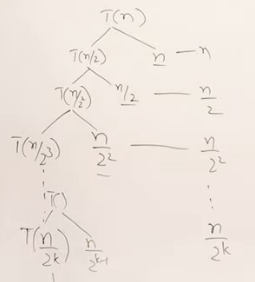 T(n)
T(n/2) n — n
T(n/2²) n/2 — n/2
T(n/2³) n/2² — n/2²
T()
T(n/2ᵏ) n/2ᵏ⁻¹ n/2ᵏ